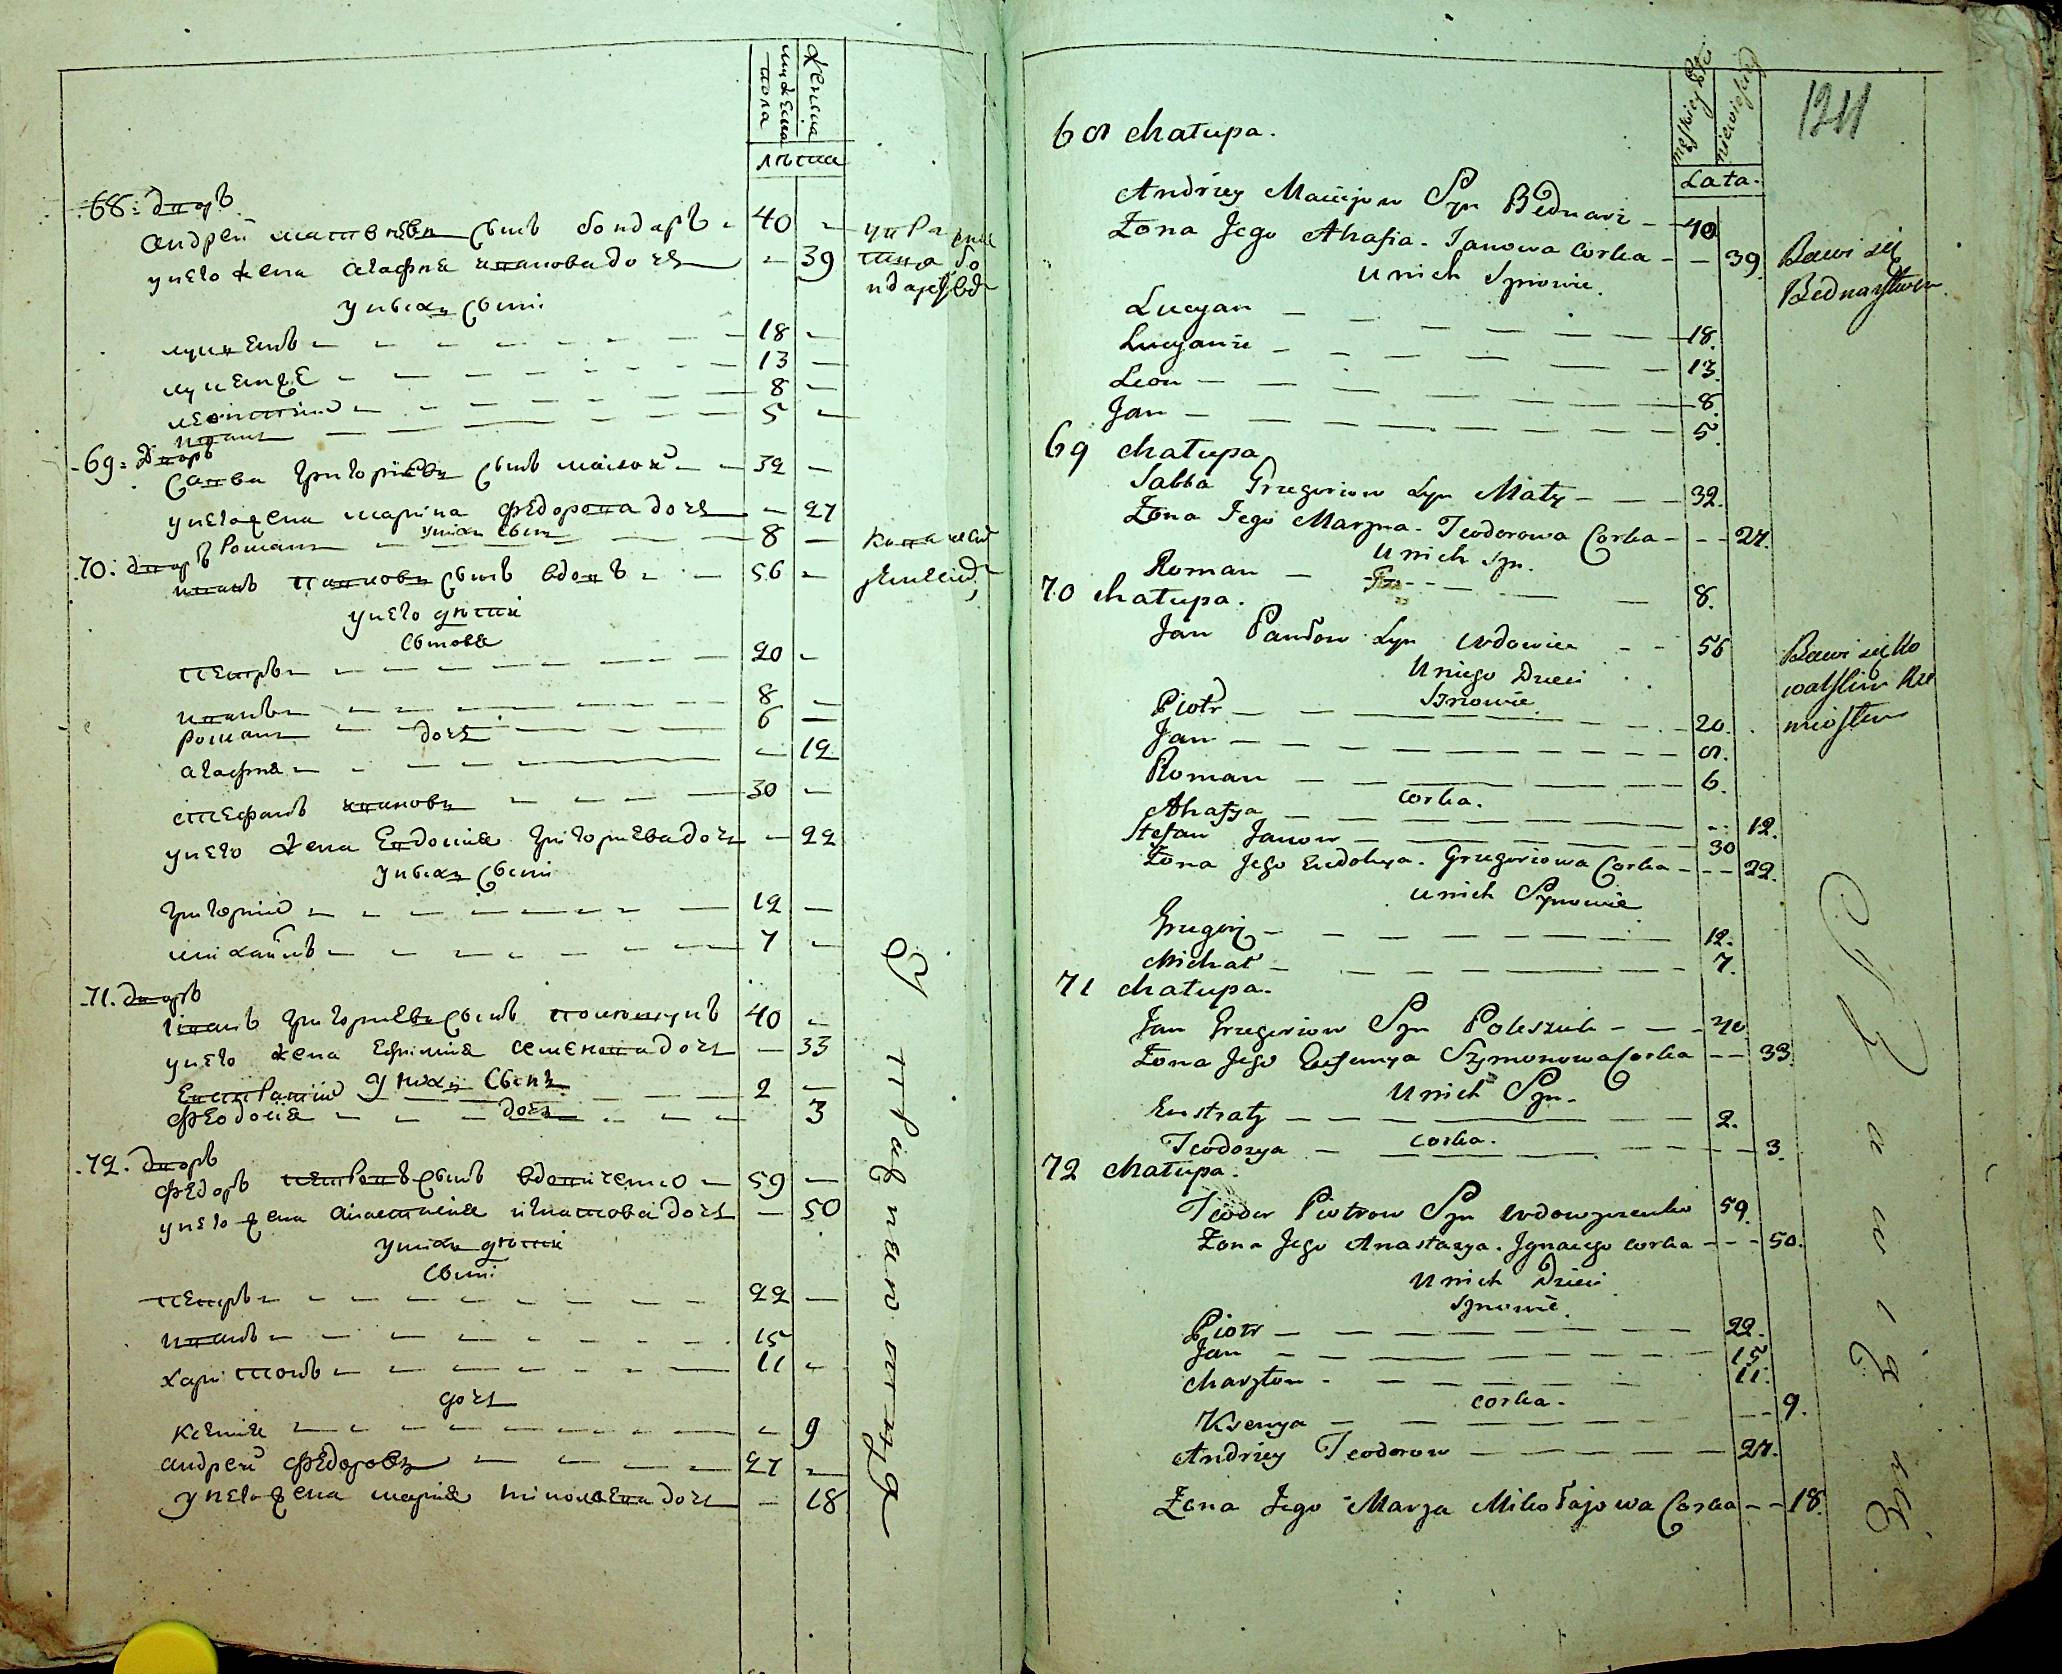 мужеска
пола
женска
лѣта
68: дворъ
андрей матвѣевъ сынъ бондаръ 40
унего жена агафия иванова дочь 39
унѣихъ сыни
лукянъ 18
13
леонтий 8
иванъ 5
69: дворъ
савва григориевъ сынъ малой 32
унего жена марина федорова дочь 27
унихъ сынъ
романъ 8
70: дворъ
иванъ павловъ сынъ вдовъ 56
унего дѣти
синове
петръ 20
иванъ 8
романъ 6
дочь
агафия 12
стефанъ ивановъ 30
унего жена евдокия григориева дочь 22
унѣихъ сыни
григорий 12
михаилъ 7
71. дворъ
иванъ григориевъ сынъ полищукъ 40
унего жена ефимия семенова дочь 33
унихъ сынъ
евстратий 2
дочь
феодосия 3
72. дворъ
федоръ петровъ сынъ вдовиченко 59
унего жена анастасия игнатова дочь 50
унихъ дѣти
сыни
петръ 22
иванъ 15
харитонъ 11
дочь
ксения 9
андрей федоровъ 27
унего жена мария николаева дочь 18
124
męskiey płci
niewieściey
Lata.
68 chałupa.
Andrzey Maciejow Syn Bednarz 40
Żona Jego Ahafia Janowa Corka 39. Bawi się
Bednarstwem
U nich Synowie.
Lucyan 18.
13.
Leon 8.
Jan 5.
69 chałupa
Sabba Grzegoriow Syn Mały 32.
Żona Jego Maryna Teodorowa Corka 27.
U nich Syn.
Roman 8.
70 chałupa.
Jan Pawłow Syn wdowiec 56 Bawi się ko
walskim Rze
miosłem
U niego Dzieci
Synowie.
Piotr 20.
Jan 8.
Roman 6.
corka.
Ahafya 12.
Stefan Janow 30
Żona Jego Eudokya Grzegoriowa Corka 22.
U nich Synowie
Grzegorz 12.
Michał 7.
71 chałupa.
Jan Grzegoriow Syn Poleszuk 40
Żona Jego Eufemya Szymonowa Corka 33.
U nich Syn.
Eustraty 2.
corka.
Teodozya 3.
72 chałupa.
Teodor Piotrow Syn wdowyczenko 59.
Żona Jego Anastazya Jgnacego corka 50.
U nich Dzieci
Synowie.
Piotr 22.
Jan 15
Charyton 11.
corka.
Ksenya 9.
Andrzey Teodorow 27.
Żona Jego Marya Mikołajowa Corka 18.